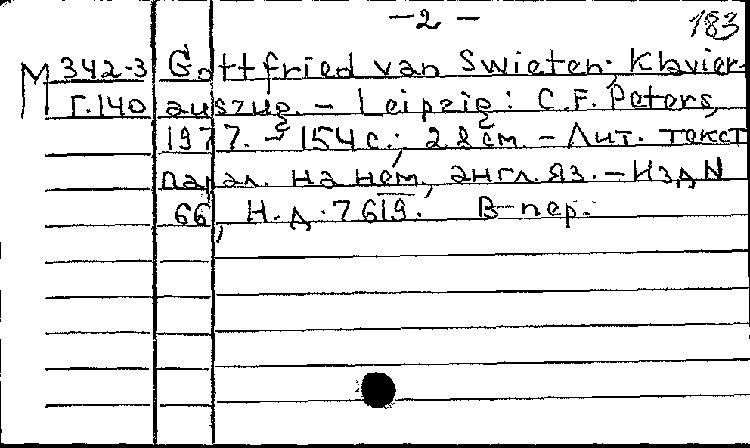 - 2 -
183
М 342-3 Gottfried van Swieten; Klavier-
Г.140 auszug. - Leipzig: C.F. Peters,
1977. - 154 с.; 28 см. - Лит. текст
парал. на нем., англ. яз. - Изд N
66, Н.д. 7619. В пер.